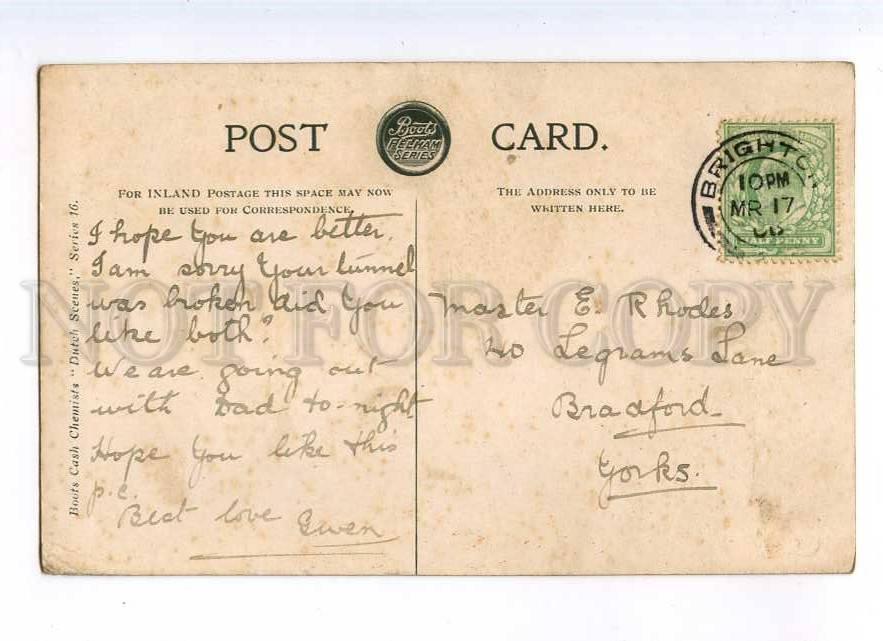 POST CARD.
Boots
PELHAM
SERIES
FOR INLAND POSTAGE THIS SPACE MAY NOW
BE USED FOR CORRESPONDENCE.
THE ADDRESS ONLY TO BE
WRITTEN HERE.
BRIGHTON
10 PM
MR 17
HALF PENNY
Boots Cash Chemists "Dutch Scenes," Series 16.
I hope you are better.
I am sorry your tunnel
was broken did you
like both?
We are going out
with Dad to-night
Hope you like this
p.c.
Best love Gwen
Master E. Rhodes
40 Legrams Lane
Bradford
Yorks.
NOT FOR COPY